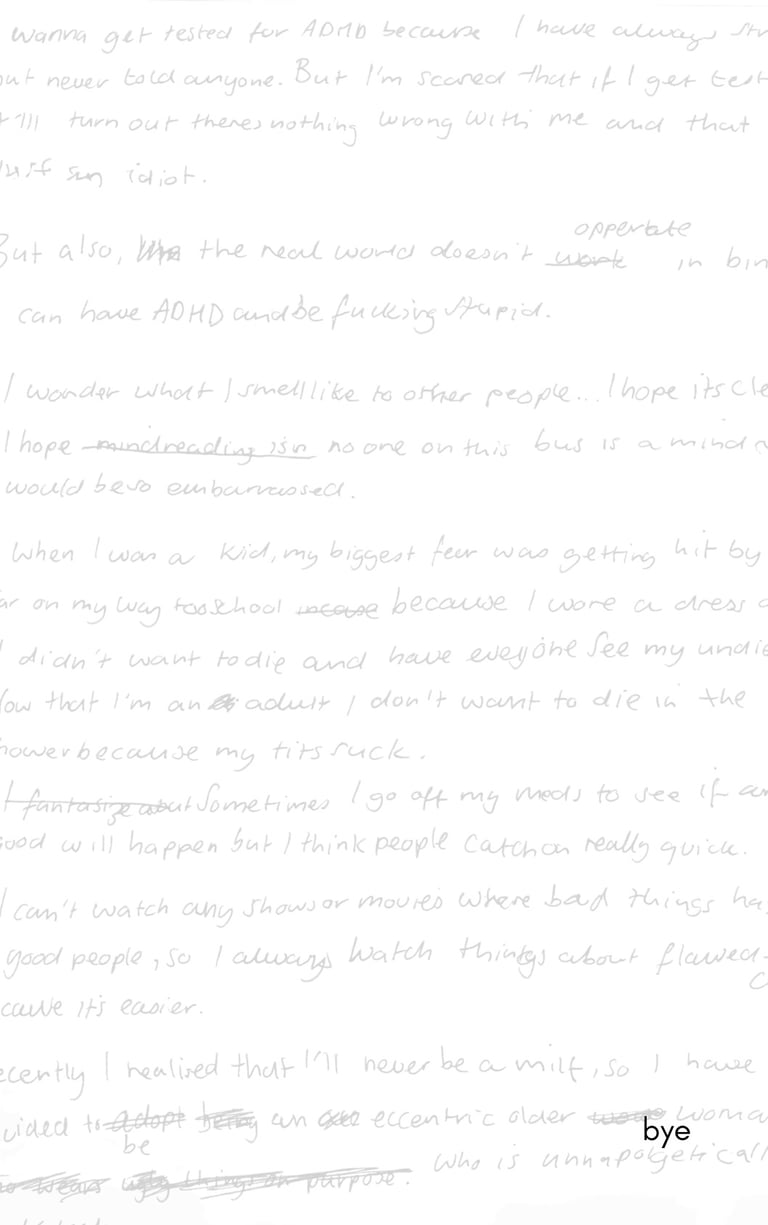 wanna get tested for ADHD because I have always str
ut never told anyone. But I'm scared that if I get test
t'll turn out theres nothing wrong with me and that
idiot.
opperate
But also, the real world doesn't work in bin
can have ADHD and be fucking stupid.
I wonder what I smell like to other people... I hope its cle
I hope mindreading isn no one on this bus is a mind r
would be so embarrassed.
When I was a kid, my biggest fear was getting hit by
ar on my way too school incase because I wore a dress a
I didn't want to die and have eveyone see my undie
Now that I'm an adult I don't want to die in the
hower because my tits suck.
I fantasize about Sometimes I go off my meds to see if an
good will happen but I think people catch on really quick.
I can't watch any shows or movies where bad things ha
good people, so I always watch things about flawed
cause it's easier.
ecently I realised that I'll never be a milf, so I have
cided to adopt being an eccentric older woma
bye
be
who is unnapolgeticall
to wears ugly things on purpose.